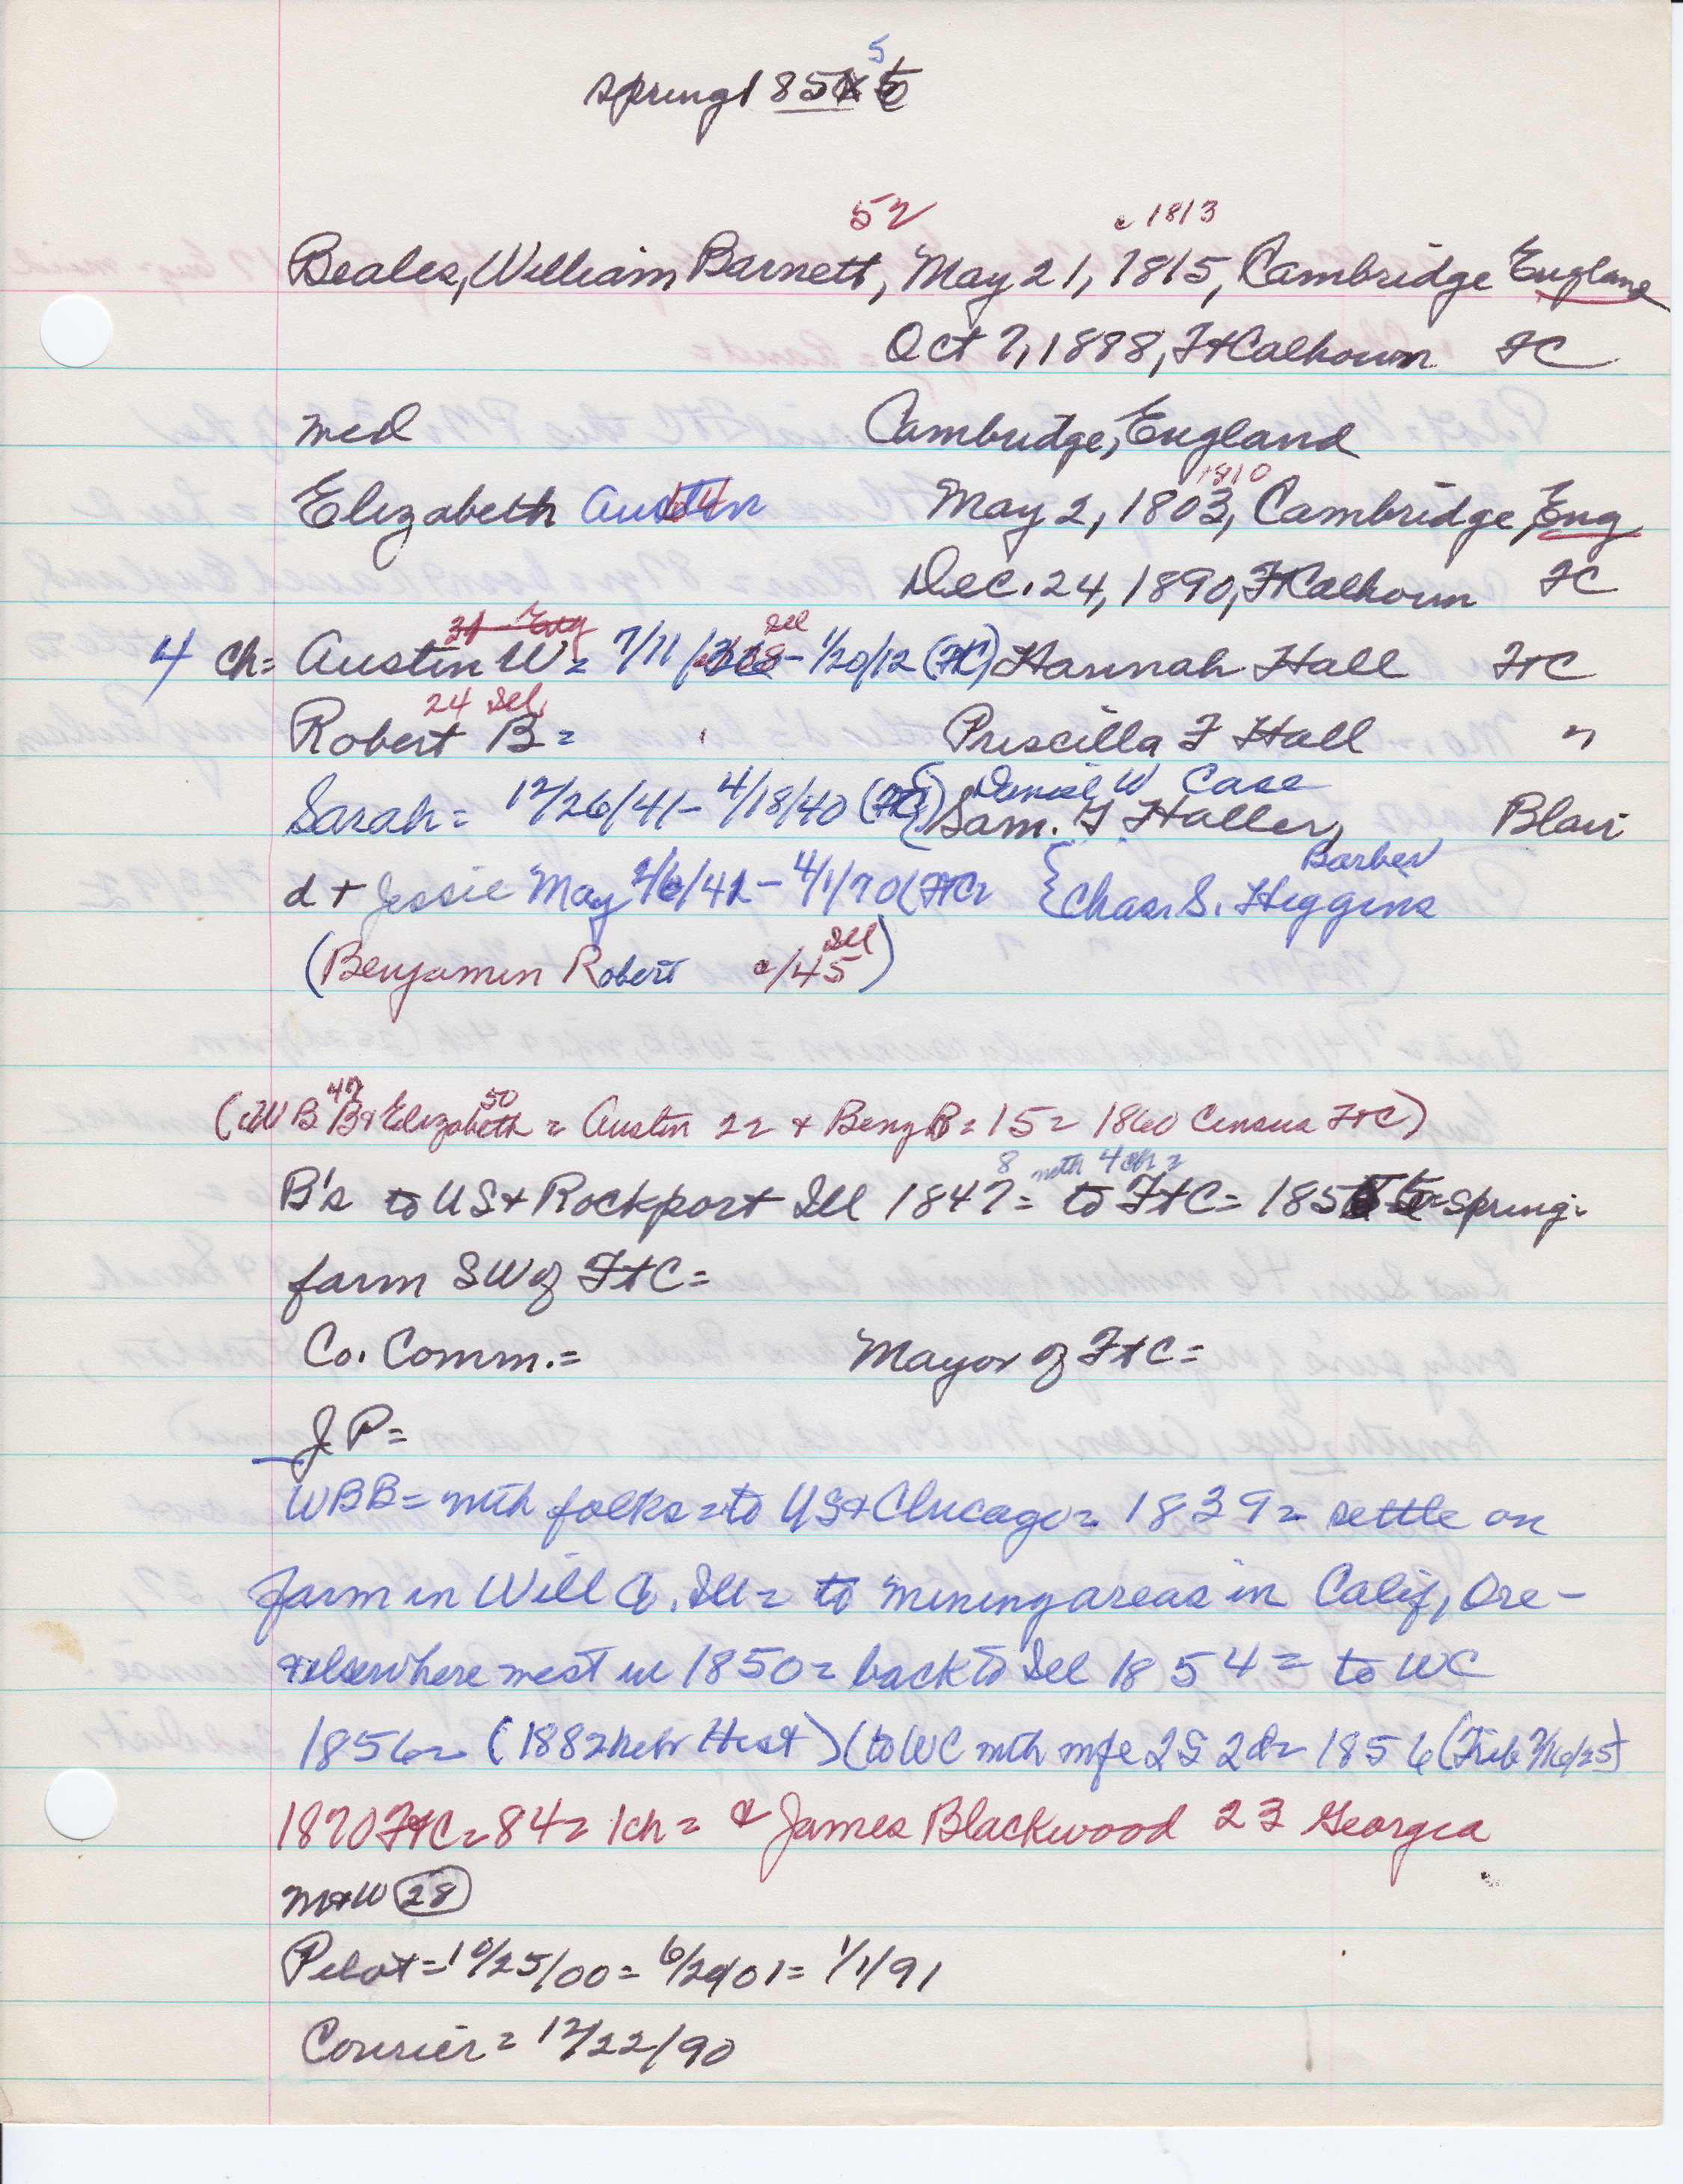 5
spring 185
52 c 1813
Beales, William Barnett, May 21, 1815, Cambridge England
Oct 7, 1898, FtCalhoun FC
med Cambridge, England
1810
Elizabeth Austin May 2, 1803, Cambridge, Eng
Dec. 24, 1890, FtCalhoun FC
31 Eng Ill
4 ch= Austin W= 7/11/38 - 1/20/12 (FtC) Hannah Hall FtC
24 Ill
Robert B= Priscilla F Hall "
Daniel W Case
Sarah= 12/26/41- 4/18/40 (FtC) Sam. F Haller, Blair
Barber
d + Jessie May 2/6/42 - 4/1/70 (FtC) {Chas. S. Higgins
Ill
(Benjamin Robert c/45)
47 50
(WB B & Elizabeth = Austin 22 & Benj B=15= 1860 Census FtC)
8 with 4 ch=
B's to US & Rockport Ill 1847= to FtC= 185 spring=
farm SW of FtC=
Co. Comm.= Mayor of FtC=
JP=
WBB= with folks=to US & Chicago= 1839= settle on
farm in Will Co. Ill= to mining areas in Calif, Ore-
& elsewhere west in 1850= back to Ill 1854= to WC
1856= (1882 Nebr Hist) (to WC with wife 2S 2d= 1856 (Trib 7/16/25)
1870 FtC= 84= 1ch= & James Blackwood 23 Georgia
M&W (28)
Pilot=10/25/00= 6/20/01= 1/1/91
Courier= 12/22/90